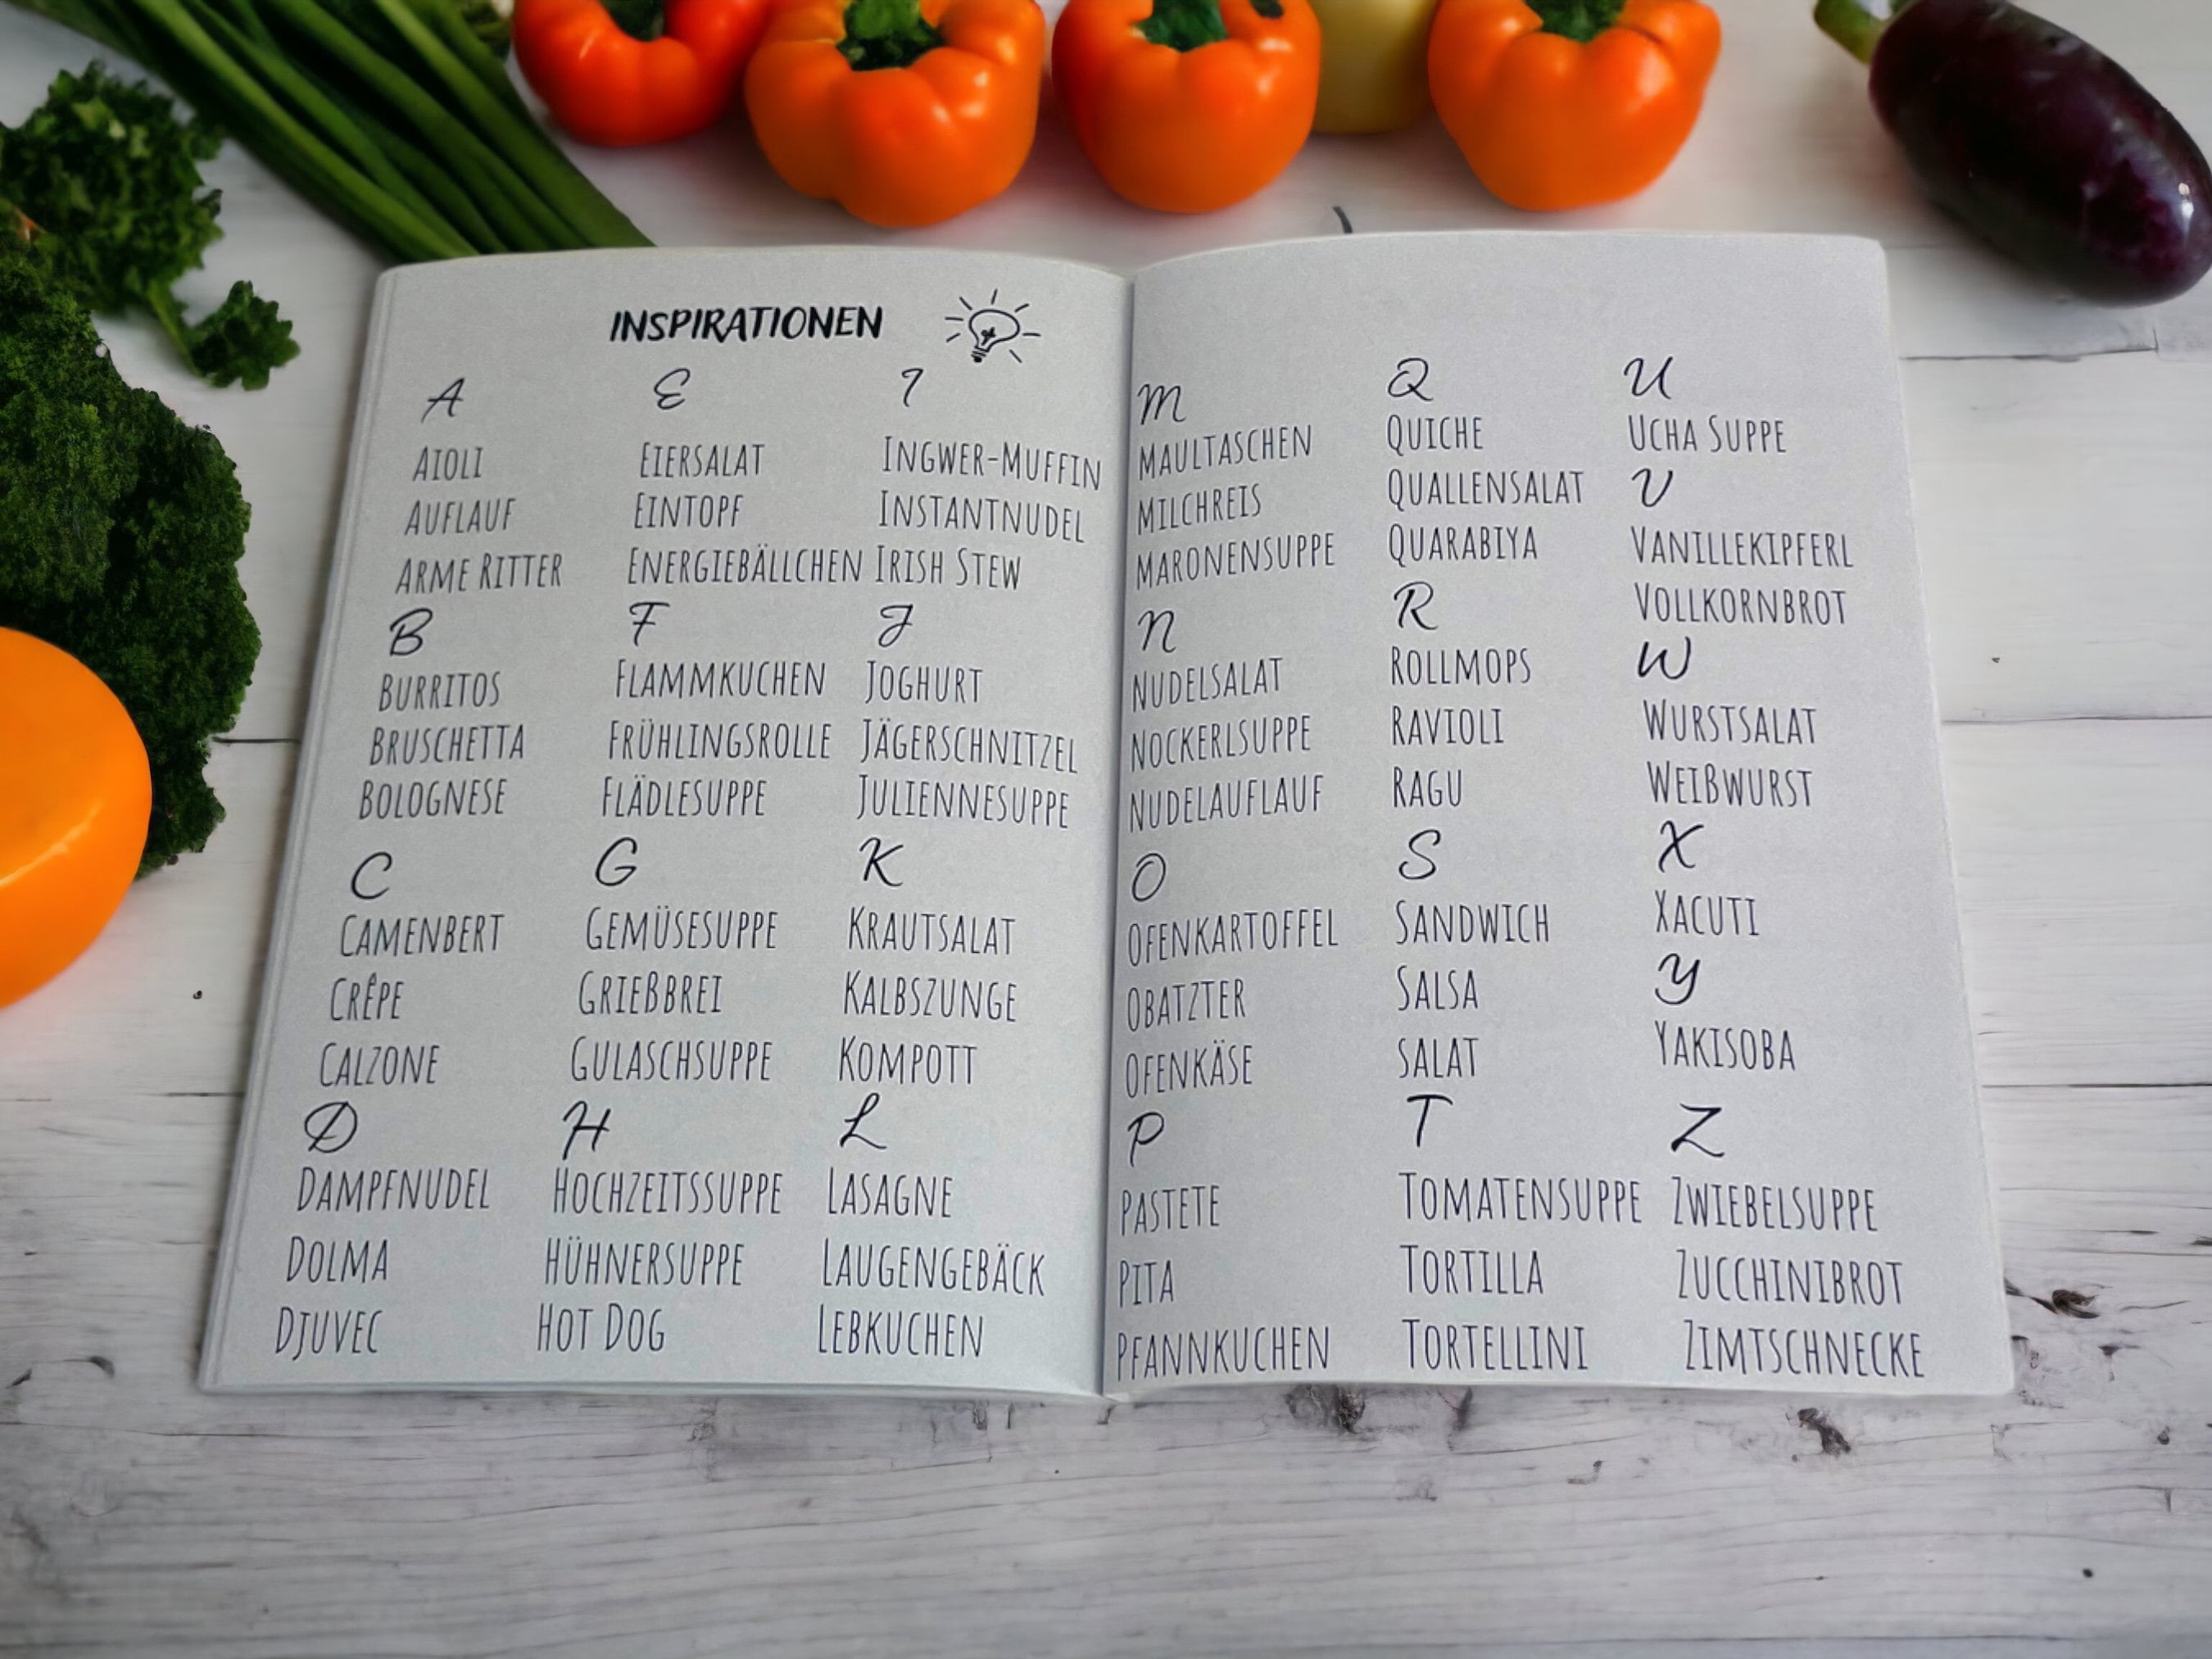 INSPIRATIONEN
A
AIOLI
AUFLAUF
ARME RITTER
B
BURRITOS
BRUSCHETTA
BOLOGNESE
C
CAMENBERT
CRÊPE
CALZONE
D
DAMPFNUDEL
DOLMA
DJUVEC
E
EIERSALAT
EINTOPF
ENERGIEBÄLLCHEN
F
FLAMMKUCHEN
FRÜHLINGSROLLE
FLÄDLESUPPE
G
GEMÜSESUPPE
GRIEßBREI
GULASCHSUPPE
H
HOCHZEITSSUPPE
HÜHNERSUPPE
HOT DOG
I
INGWER-MUFFIN
INSTANTNUDEL
IRISH STEW
J
JOGHURT
JÄGERSCHNITZEL
JULIENNESUPPE
K
KRAUTSALAT
KALBSZUNGE
KOMPOTT
L
LASAGNE
LAUGENGEBÄCK
LEBKUCHEN
M
MAULTASCHEN
MILCHREIS
MARONENSUPPE
N
NUDELSALAT
NOCKERLSUPPE
NUDELAUFLAUF
O
OFENKARTOFFEL
OBATZTER
OFENKÄSE
P
PASTETE
PITA
PFANNKUCHEN
Q
QUICHE
QUALLENSALAT
QUARABIYA
R
ROLLMOPS
RAVIOLI
RAGU
S
SANDWICH
SALSA
SALAT
T
TOMATENSUPPE
TORTILLA
TORTELLINI
U
UCHA SUPPE
V
VANILLEKIPFERL
VOLLKORNBROT
W
WURSTSALAT
WEIßWURST
X
XACUTI
Y
YAKISOBA
Z
ZWIEBELSUPPE
ZUCCHINIBROT
ZIMTSCHNECKE